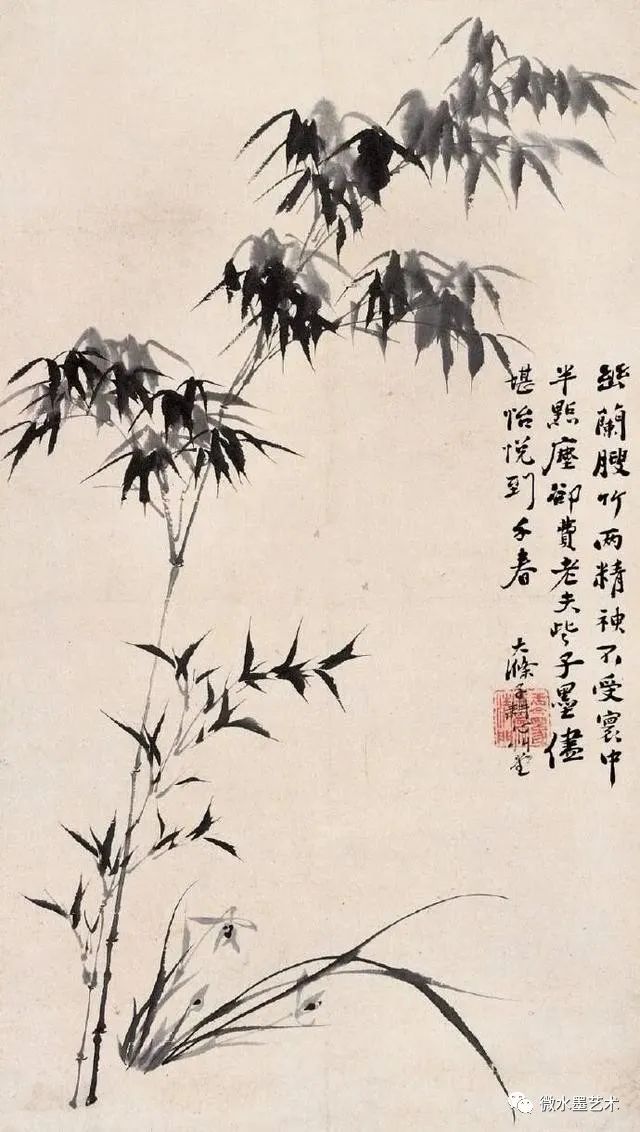 幽蘭膄竹兩精神不受寰中
半點塵卻費老夫些子墨儘
堪怡悅到千春
大滌子耕心艸堂
微水墨艺术